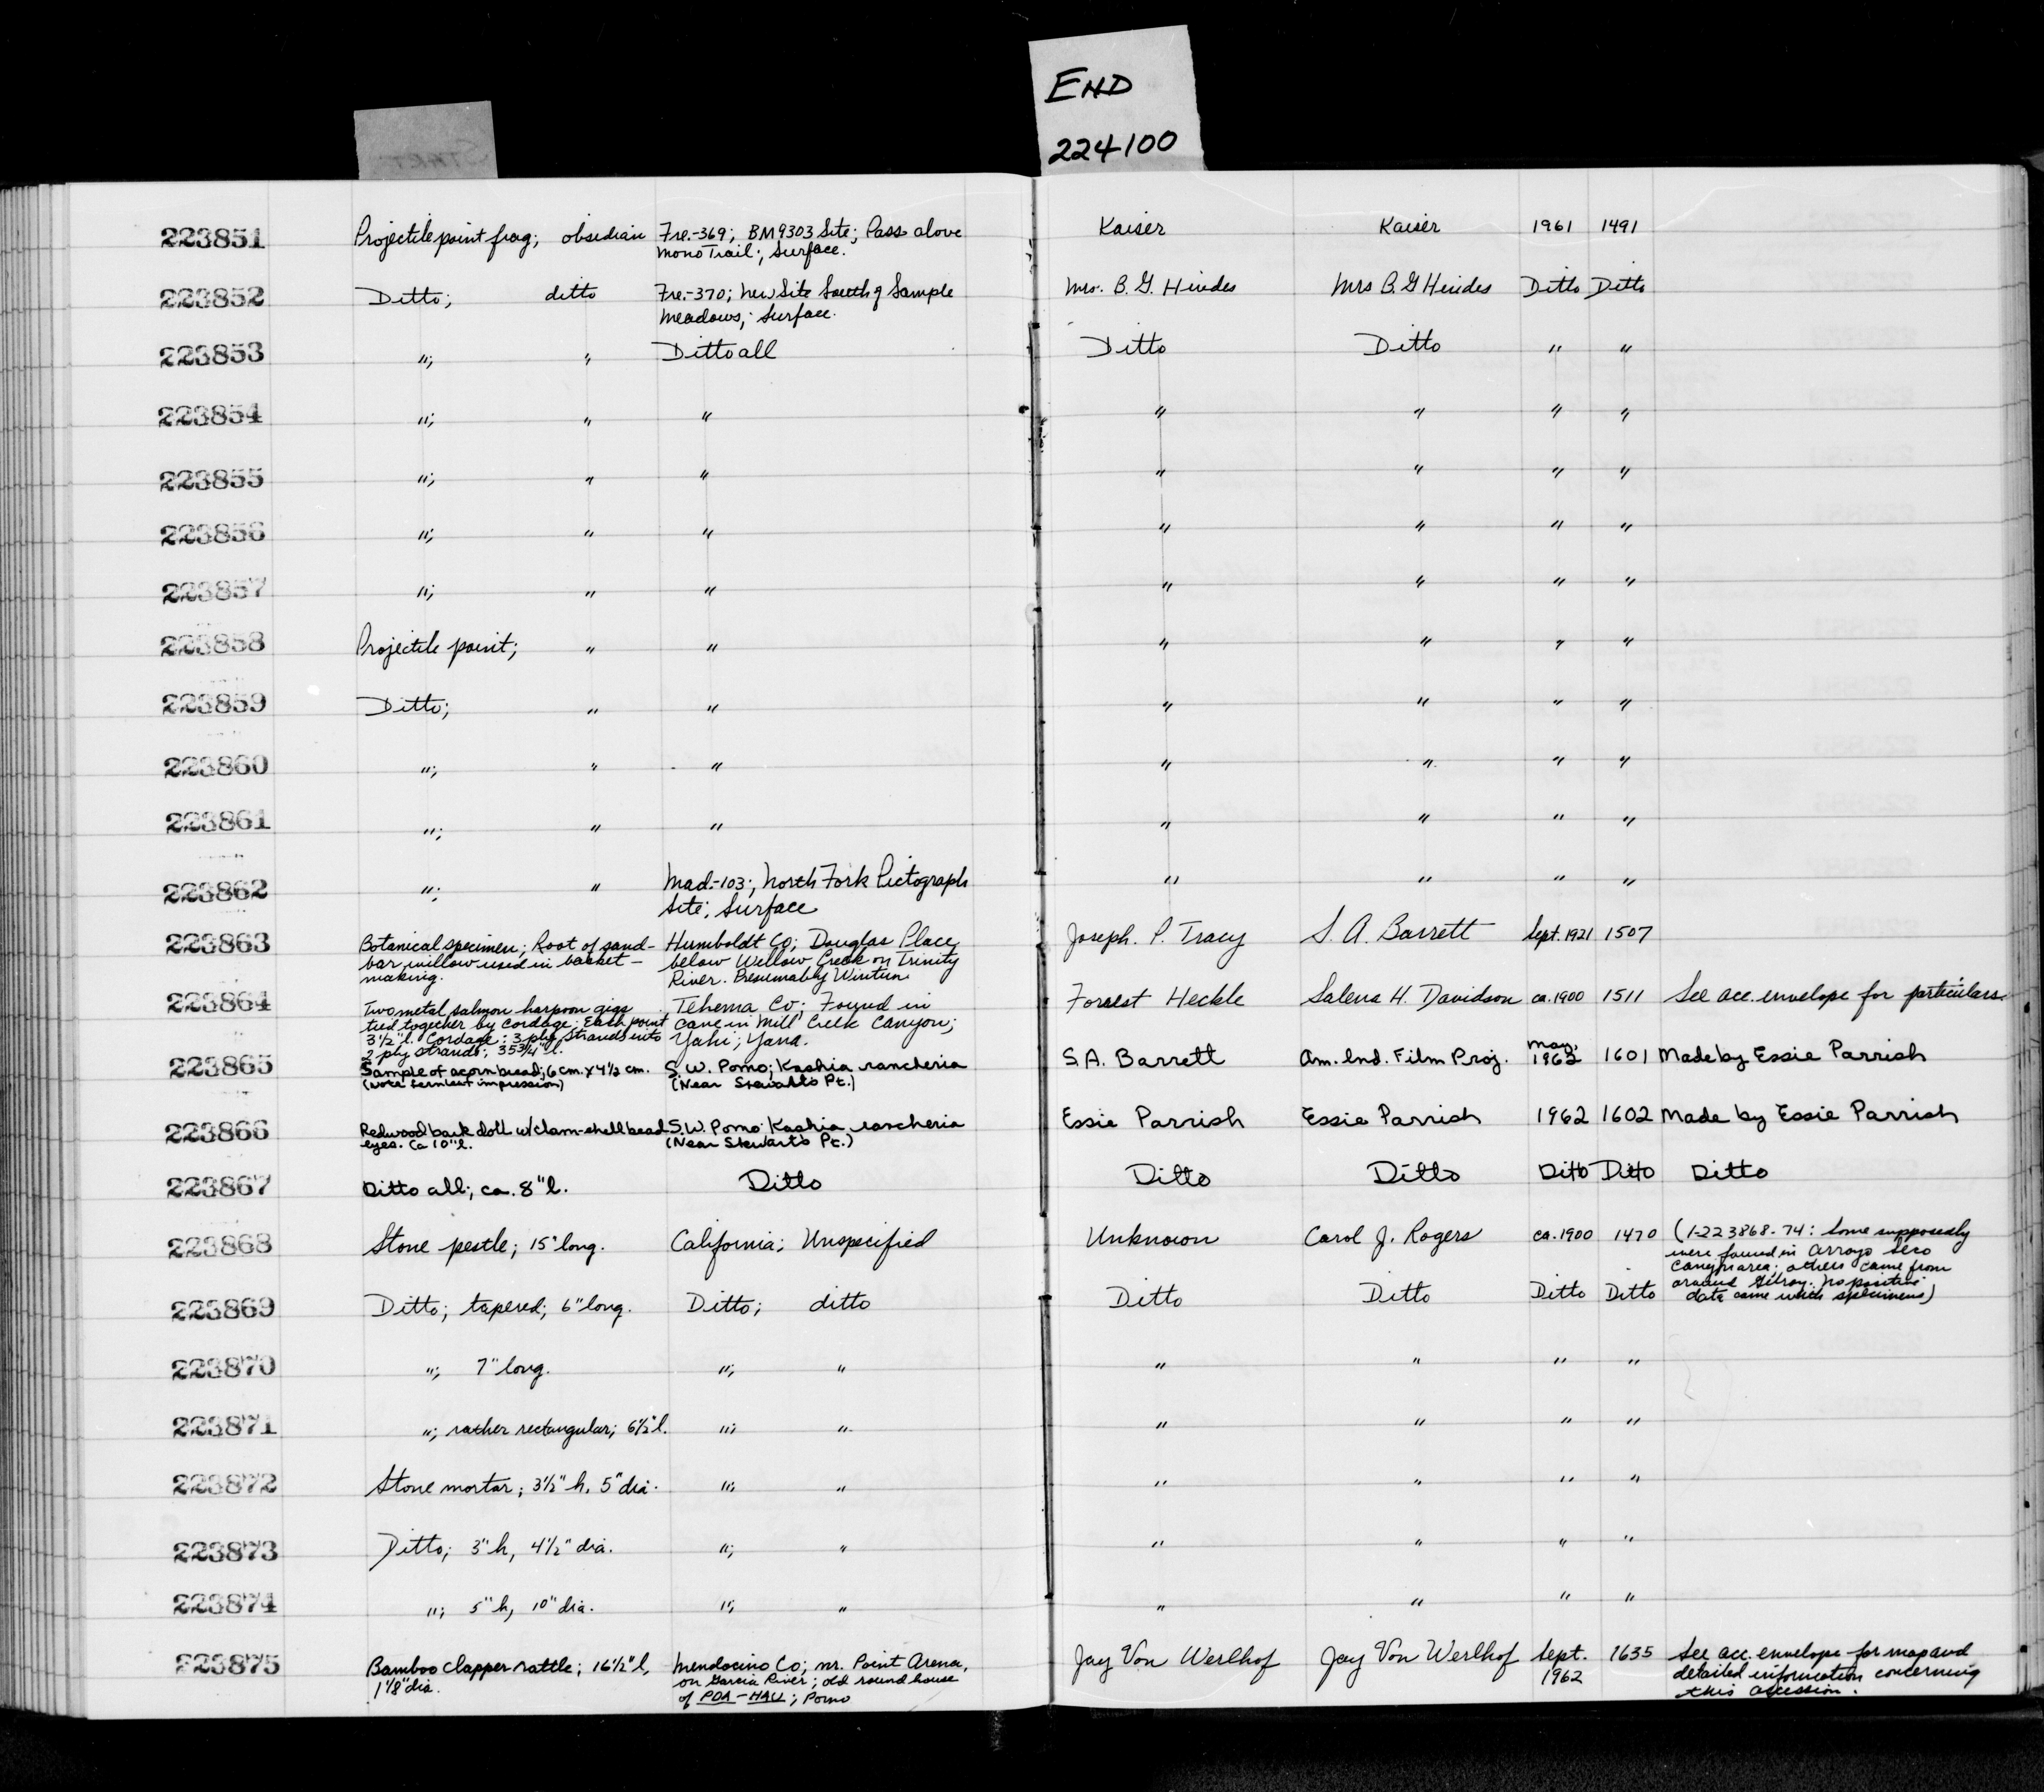 END
224100
START
223851 Projectile point frag; obsidian Fre.-369; BM9303 Site; Pass above Kaiser Kaiser 1961 1491
Mono Trail; Surface.
223852 Ditto; ditto Fre.-370; New Site South of Sample Mrs. B. G. Hindes Mrs B. G Hindes Ditto Ditto
Meadows; Surface.
223853 "; " Ditto all Ditto Ditto " "
223854 "; " " " " " "
223855 "; " " " " " "
223856 "; " " " " " "
223857 "; " " " " " "
223858 Projectile point; " " " " " "
223859 Ditto; " " " " " "
223860 "; " " " " " "
223861 "; " " " " " "
223862 "; " Mad.-103; North Fork Pictograph " " " "
Site; Surface
223863 Botanical specimen; Root of sand- Humboldt Co; Douglas Place, Joseph. P. Tracy S. A. Barrett Sept. 1921 1507
bar willow used in basket- below Willow Creek on Trinity
making. River. Presumably Wintun
223864 Two metal salmon harpoon gigs Tehema Co; Found in Forrest Heckle Salena H. Davidson ca. 1900 1511 See acc. envelope for particulars
tied together by cordage. Each point cave in Mill Creek Canyon;
3 1/2" l. Cordage: 3 ply strands into Yahi; Yana.
2 ply strands; 35 3/4" l.
223865 Sample of acorn bread; 6 cm. x 4 1/2 cm. S. W. Pomo; Kashia rancheria S. A. Barrett Am. Ind. Film Proj. May, 1962 1601 Made by Essie Parrish
(Note fernleaf impression) (Near Stewarts Pt.)
223866 Redwood bark doll w/clam-shell bead S. W. Pomo Kashia rancheria Essie Parrish Essie Parrish 1962 1602 Made by Essie Parrish
eyes. Ca 10" l. (Near Stewarts Pt.)
223867 Ditto all; ca. 8" l. Ditto Ditto Ditto Ditto Ditto Ditto
223868 Stone pestle; 15" long. California; Unspecified Unknown Carol J. Rogers ca. 1900 1470 (1-223868-74: Some supposedly
were found in Arroyo Seco
Canyon area; others came from
around Gilroy. No positive
data came with specimens)
223869 Ditto; tapered; 6" long. Ditto; ditto Ditto Ditto Ditto Ditto
223870 "; 7" long. "; " " " " "
223871 "; rather rectangular; 6 1/2" l. "; " " " " "
223872 Stone mortar; 3 1/2" h, 5" dia. "; " " " " "
223873 Ditto; 3" h, 4 1/2" dia. "; " " " " "
223874 "; 5" h, 10" dia. "; " " " " "
223875 Bamboo clapper rattle; 16 1/2" l, Mendocino Co; nr. Point Arena, Jay Von Werlhof Jay Von Werlhof Sept. 1635 See acc. envelope for map and
1 1/8" dia. on Garcia River; old round house 1962 detailed information concerning
of PDA-HAU; Pomo this accession.